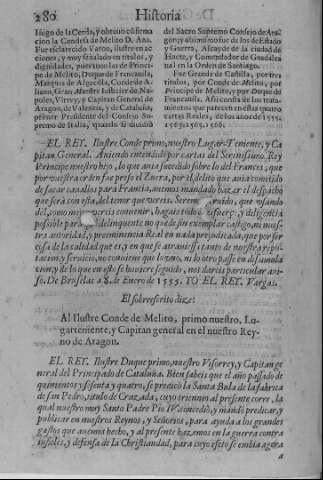 280 Historia
Iñigo de la Cerda, y obtuvo confirma
cion la Condesa de Melito D. Ana.
Fue esclarecido Varon, ilustre en ac
ciones, y muy señalado en titulos, y
dignidades, pues tuvo las de Princi-
pe de Melito, Duque de Francauila,
Marques de Algecilla, Conde de A-
liano, Gran Maestre Iusticier de Na-
poles, Virrey, y Capitan General de
Aragon, de Valencia, y de Cataluña,
primer Presidente del Consejo Su-
premo de Italia, quando se diuidiò
del Sacro Supremo Consejo de Ara-
gon; y asimismo fue de los de Estado
y Guerra, Alcayde de la ciudad de
Huete, y Comendador de Guadalca
nal en la Orden de Santiago.
Fue Grande de Castilla, por tres
titulos, por Conde de Melito, por
Principe de Melito, y por Duque de
Francauila. Assi consta de los trata-
mientos que parecen en estas quatro
cartas Reales, de los años de 1555.
EL REY. Ilustre Conde primo, nuestro Lugar-Teniente, y Ca
pitan General. Auiendo entendido por cartas del Serenissimo Rey
Principe nuestro hijo, lo que auia sucedido sobre lo del Frances, que
por vuestra orden fue preso el Enero, por el delito que auia cometido
de sacar cauallos para Francia, auemos mandado hazer el despacho
que serà con esta, del tenor que vereis. Seremos seruido, que vsando
del, como mejor vereis conuenir, hagais todo esfuerço, y diligencia
possible para que el delinquente no quede sin exemplar castigo, ni nues-
tra autoridad, y preeminencia Real en nada prejudicada, que por ser
cosa de la calidad que es, y en que se atrauiessa tanto de nuestra repu-
tacion, y seruicio, no conuiene que lo uno, ni lo otro passe en dissimula-
cion, y de lo que en esto se houiere seguido, nos dareis particular aui-
so. De Bruselas à 8. de Enero de 1555. YO EL REY. Vargas.
El sobreescrito dize:
Al Ilustre Conde de Melito, primo nuestro, Lu-
garteniente, y Capitan general en el nuestro Rey-
no de Aragon.
EL REY. Ilustre Duque primo, nuestro Visorrey, y Capitan ge
neral del Principado de Cataluña. Bien sabeis que el año passado de
quinientos y sesenta y quatro, se predicò la Santa Bula de la fabrica
de san Pedro, titulo de Cruzada, cuyo trienio al presente corre, la
qual nuestro muy Santo Padre Pio IV. concediò, y mandò predicar, y
publicar en nuestros Reynos, y Señorios, para ayuda a los grandes
gastos que auemos hecho, y al presente hazemos en la guerra contra
infieles, y defensa de la Christiandad, para cuyo efeto se embia agora
a